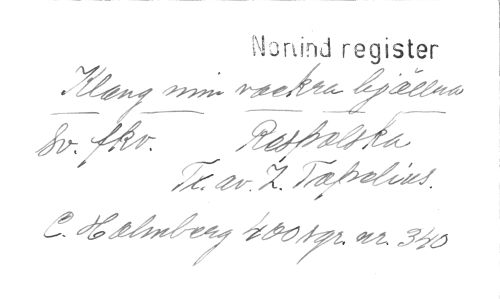 Nonind register
Klang min vackra bjällna
Sv. fkv. Raspolska
Tx. av. Z. Topelius.
C. Holmberg 400 sgr. nr. 340